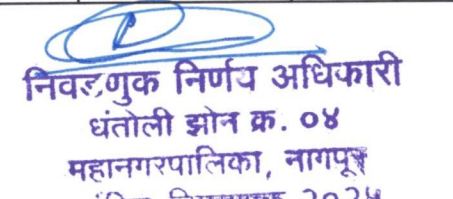 निवडणुक निर्णय अधिकारी
धंतोली झोन क्र. ०४
महानगरपालिका, नागपूर
२०२५